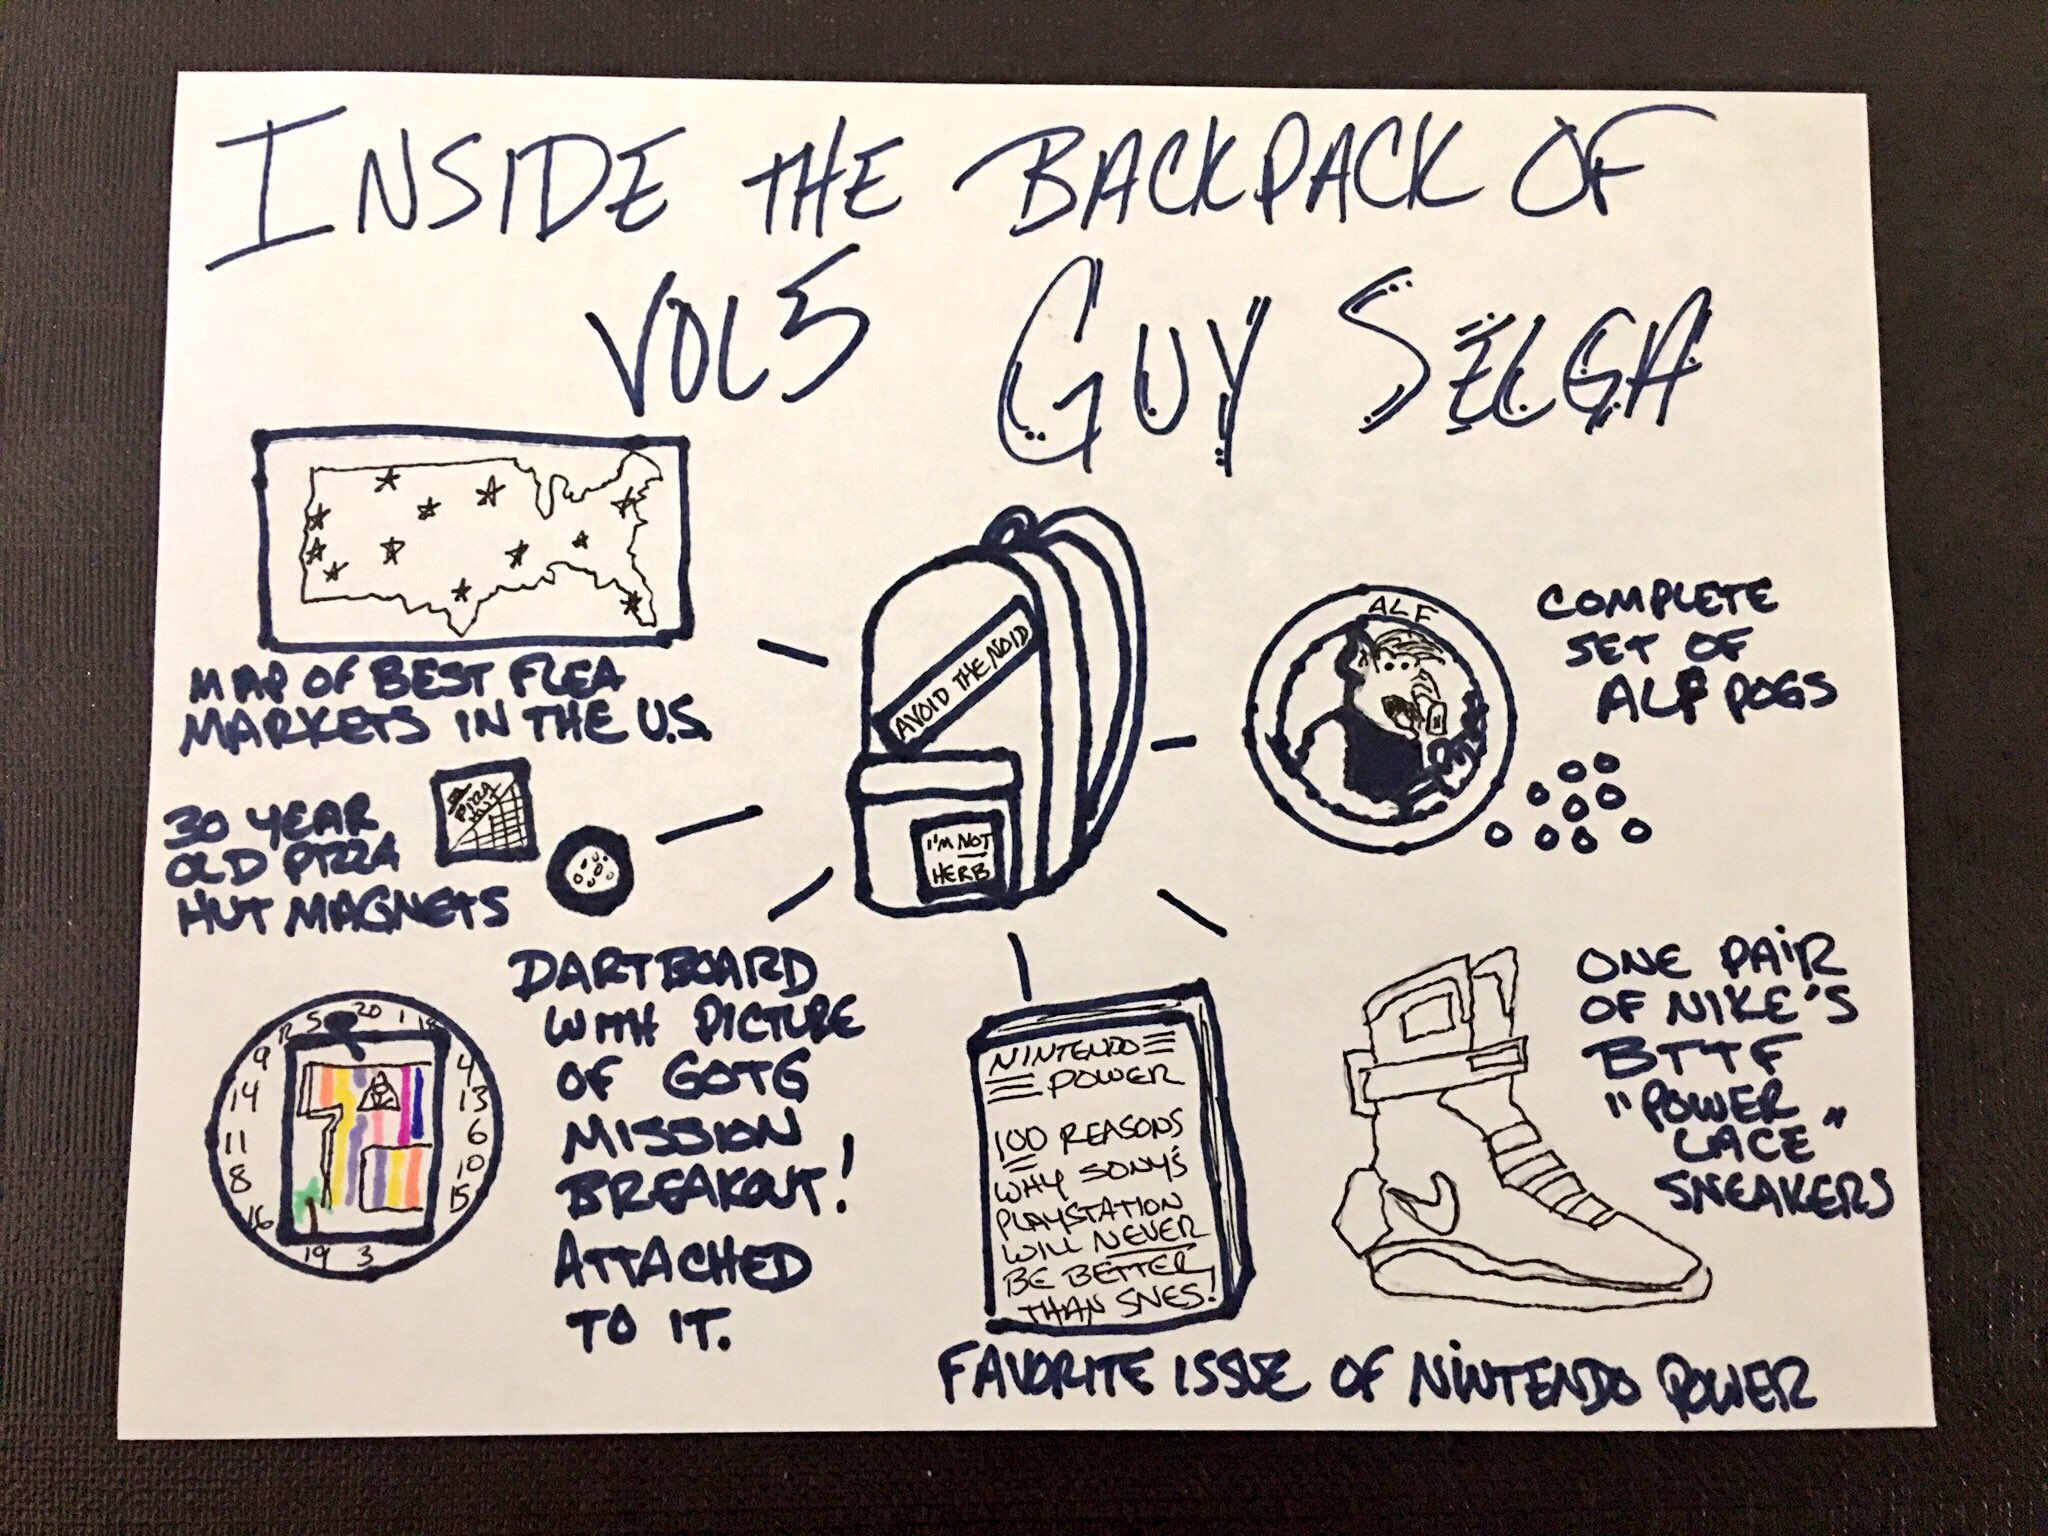 INSIDE THE BACKPACK OF
VOL 5 GUY SELGA
MAP OF BEST FLEA
MARKETS IN THE U.S.
30 YEAR
OLD PIZZA
HUT MAGNETS
PIZZA
HUT
AVOID THE NOID
I'M NOT
HERB
ALF
COMPLETE
SET OF
ALF POGS
DARTBOARD
WITH PICTURE
OF GOTG
MISSION
BREAKOUT!
ATTACHED
TO IT.
12 5 20 1 18
9 4
14 13
11 6
8 10
16 15
19 3
NINTENDO
POWER
100 REASONS
WHY SONY'S
PLAYSTATION
WILL NEVER
BE BETTER
THAN SNES!
FAVORITE ISSUE OF NINTENDO POWER
ONE PAIR
OF NIKE'S
BTTF
"POWER
LACE"
SNEAKERS